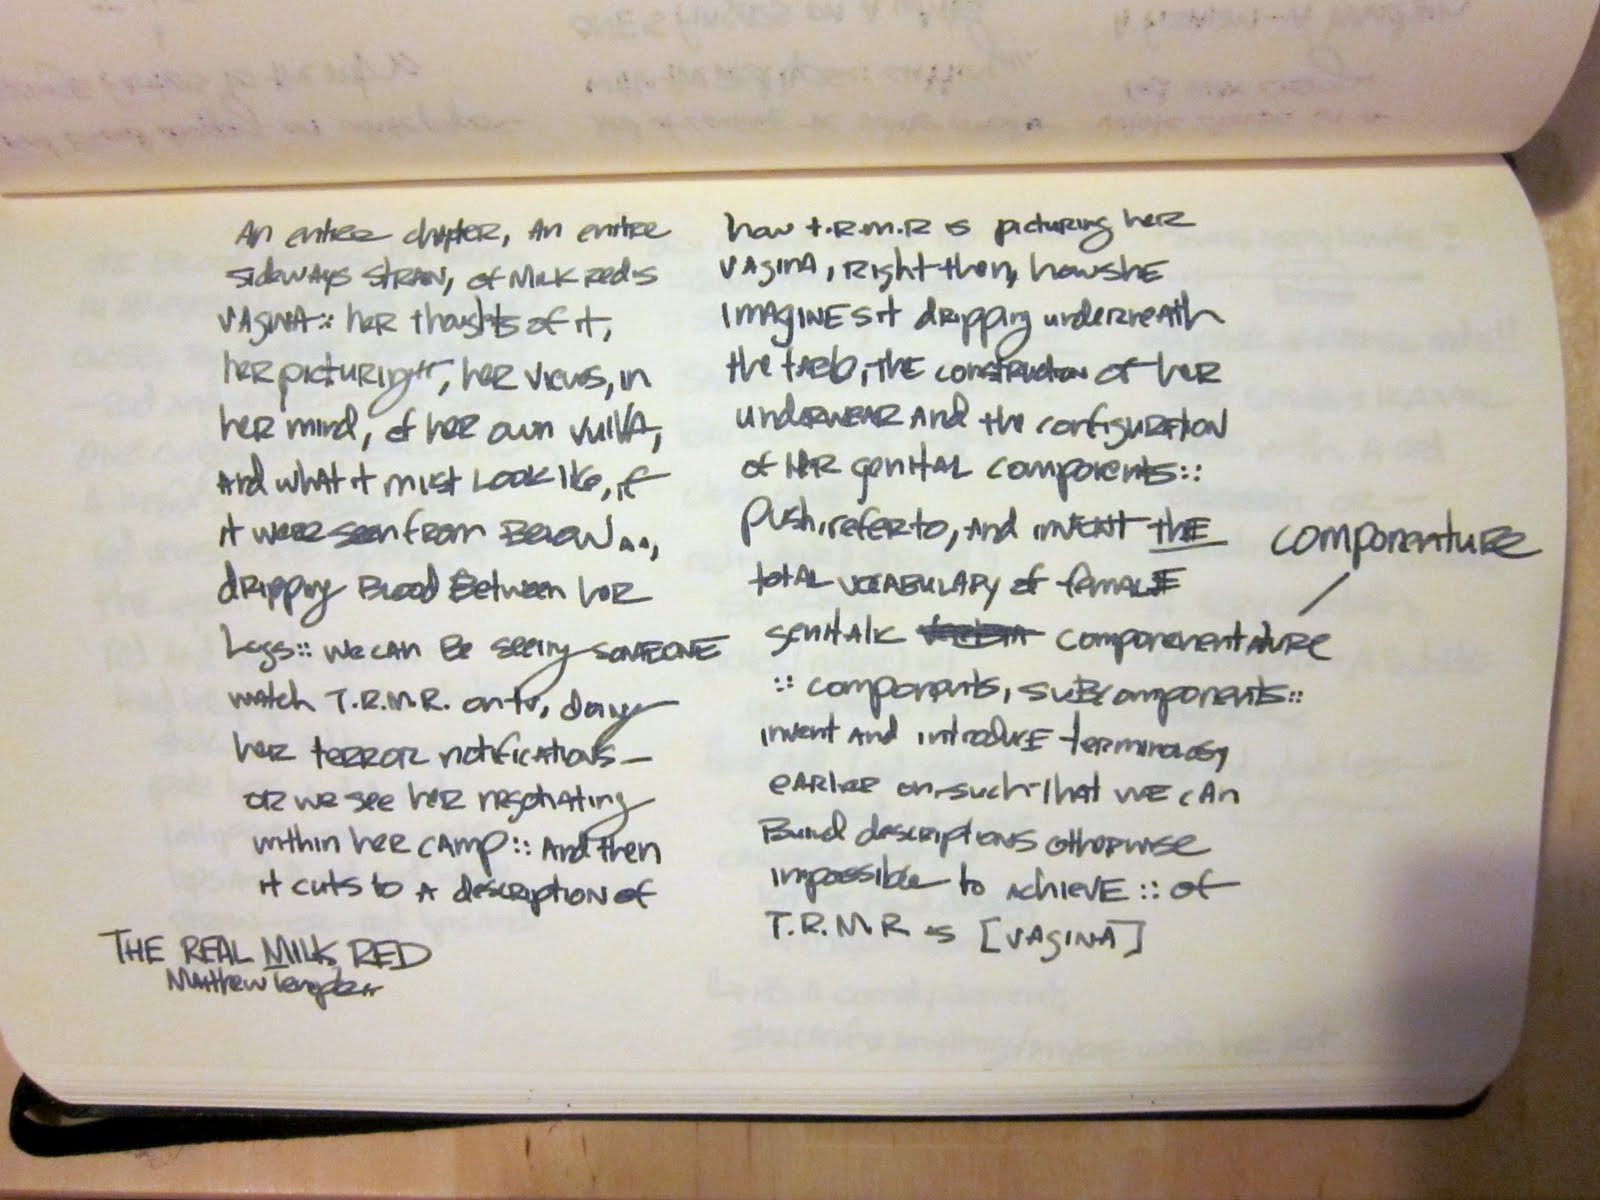 An entire chapter, An entire
sideways strain, of Milk Red's
VAGINA :: her thoughts of it,
her picturing, her views, in
her mind, of her own vulva,
And what it must LOOK like, if
it were seen from Below,
dripping Blood Between her
Legs :: we can Be seeing SOMEONE
watch T.R.M.R. on tv, doing
her terror notifications —
or we see her negotiating
within her camp :: And then
it cuts to A description of
THE REAL MILK RED
Matthew
how T.R.M.R is picturing her
VAGINA, right then, how she
IMAGINES it dripping underneath
the table, THE construction of her
underwear and the configuration
of her genital components ::
Push, refer to, And INVENT THE
total vocabulary of female
genitalic componentature
componenture
:: components, subcomponents ::
invent and introduce terminology
earlier on, such that we can
Build descriptions otherwise
impossible to ACHIEVE :: of
T.R.M.R's [VAGINA]